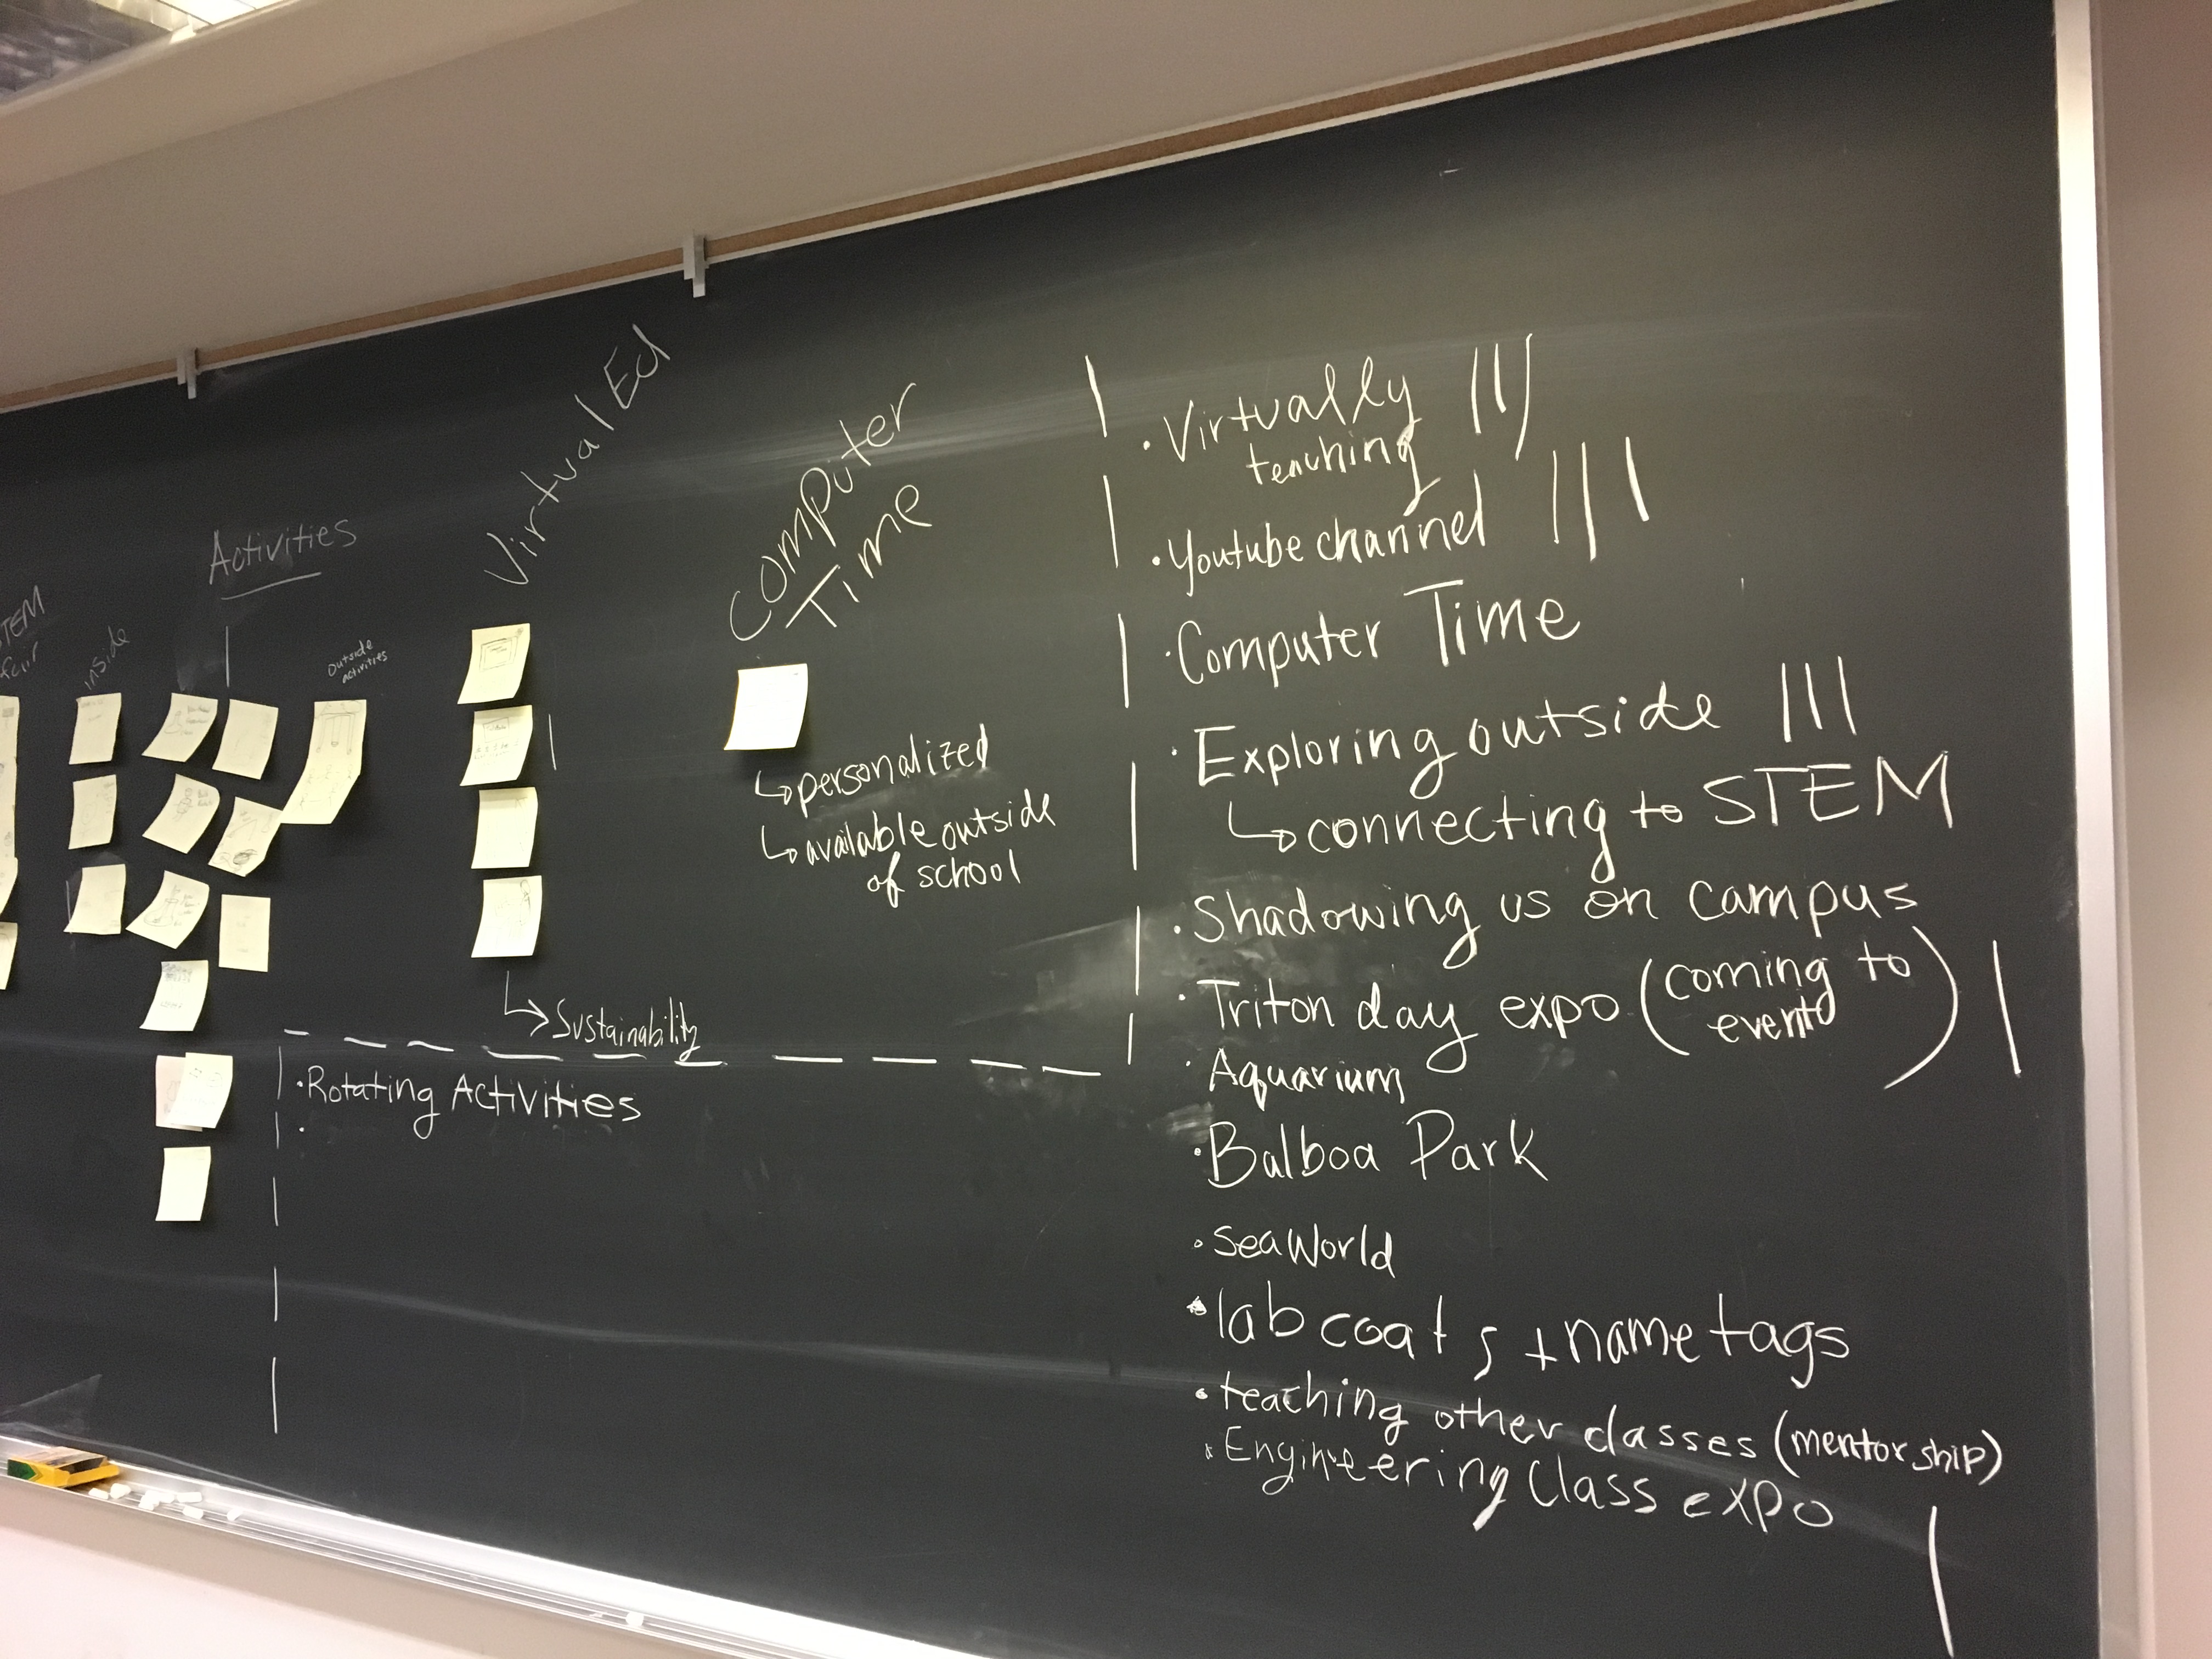 STEM
fair
inside
Activities
Outside
activities
Virtual Ed
Sustainability
Computer
Time
personalized
available outside
of school
• Rotating Activities
•
• Virtually |||
teaching
• Youtube channel |||
• Computer Time
• Exploring outside |||
connecting to STEM
• Shadowing us on campus
• Triton day expo (coming to
event) |
• Aquarium
• Balboa Park
• SeaWorld
• lab coats + name tags
• teaching other classes (mentorship)
• Engineering Class expo |